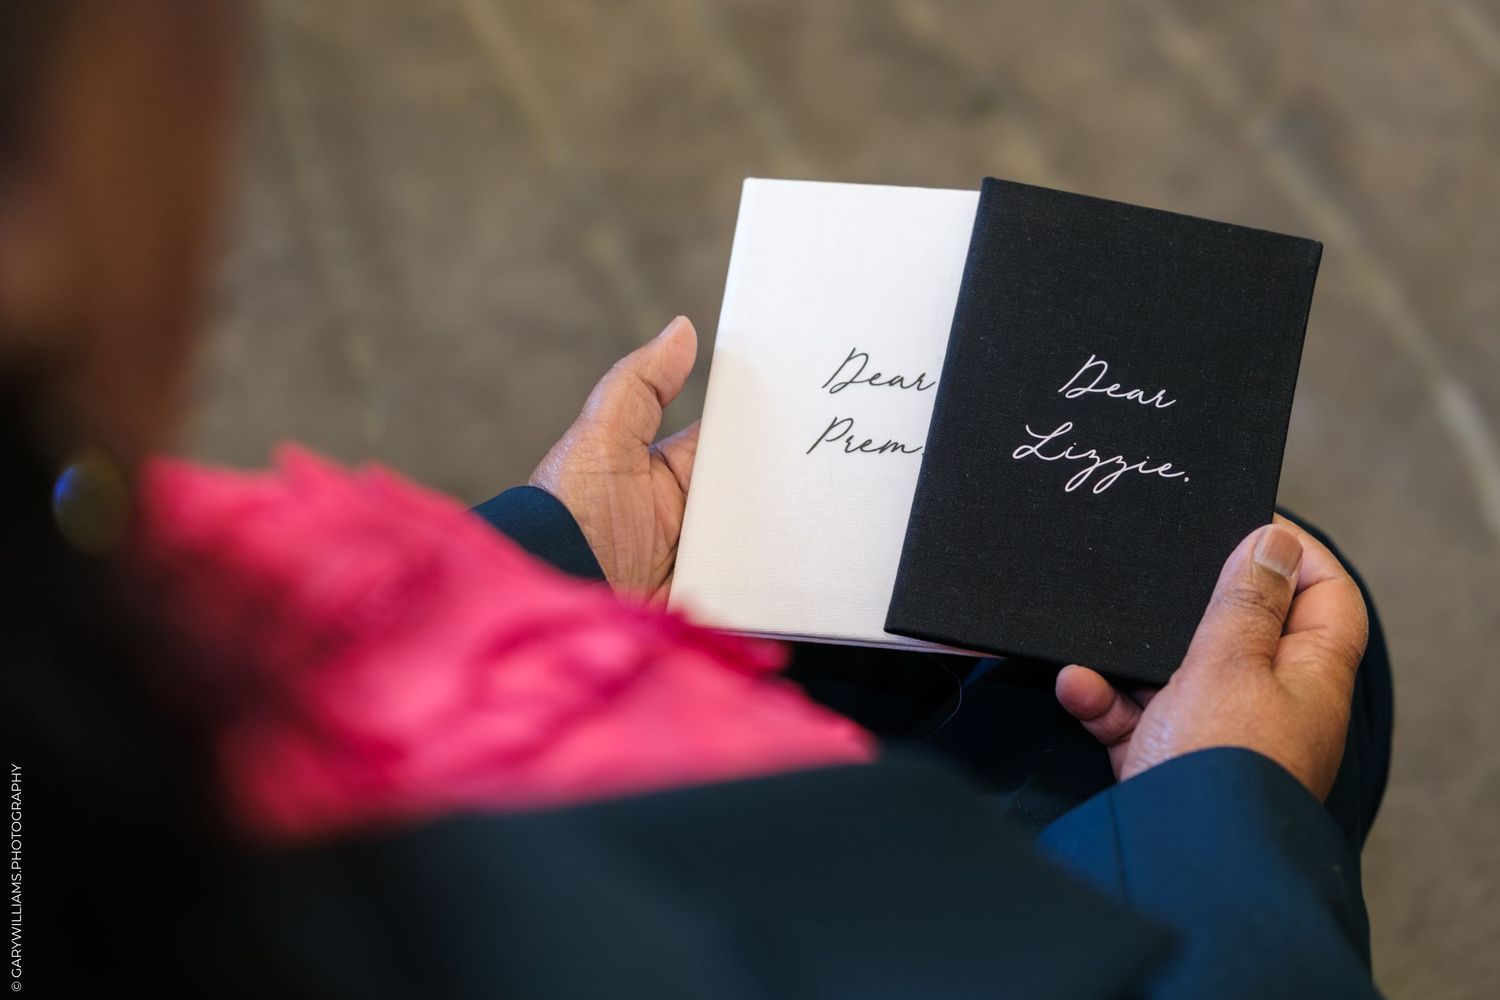 Dear
Prem.
Dear
Lizzie.
© GARYWILLIAMS.PHOTOGRAPHY